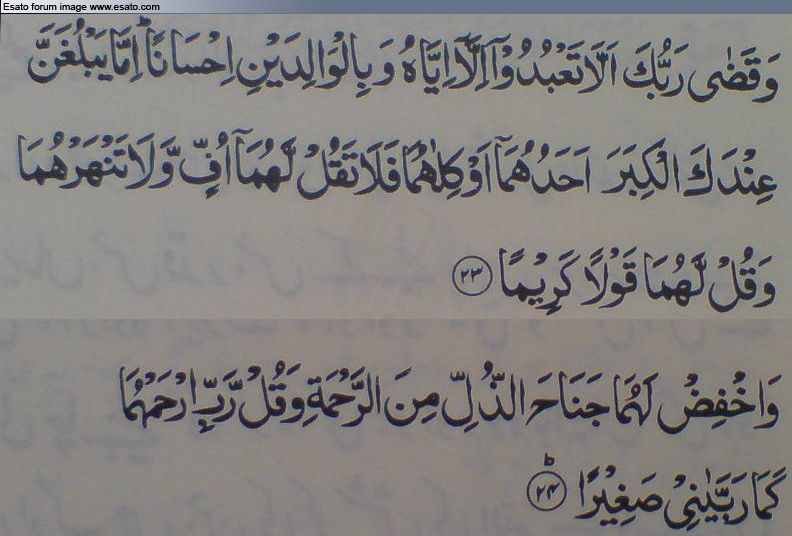 Esato forum image www.esato.com
وَقَضٰى رَبُّكَ اَلَّا تَعْبُدُوْٓا اِلَّآ اِيَّاهُ وَبِالْوَالِدَيْنِ اِحْسَانًا ؕ اِمَّا يَبْلُغَنَّ
عِنْدَكَ الْكِبَرَ اَحَدُهُمَآ اَوْ كِلٰهُمَا فَلَا تَقُلْ لَّهُمَآ اُفٍّ وَّلَا تَنْهَرْهُمَا
وَقُلْ لَّهُمَا قَوْلًا كَرِيْمًا ۲۳
وَاخْفِضْ لَهُمَا جَنَاحَ الذُّلِّ مِنَ الرَّحْمَةِ وَقُلْ رَّبِّ ارْحَمْهُمَا
كَمَا رَبَّيٰنِيْ صَغِيْرًا ؕ ۲۴